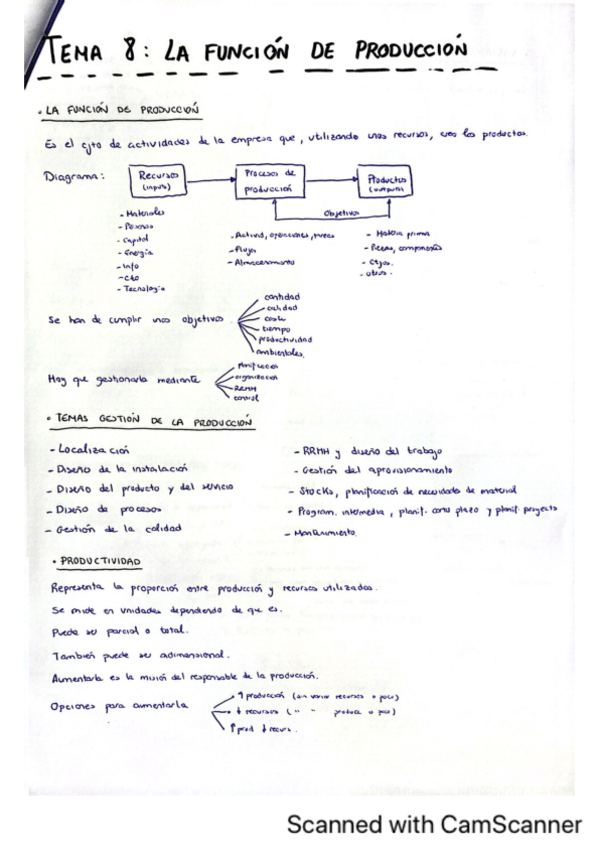 TEMA 8: LA FUNCIÓN DE PRODUCCIÓN
· LA FUNCIÓN DE PRODUCCIÓN
Es el cjto de actividades de la empresa que, utilizando unos recursos, crea los productos.
Diagrama:
Recursos (inputs)
Procesos de producción
Productos (outputs)
Objetivos
- Materiales
- Personas
- Capital
- Energía
- Info
- Cto
- Tecnología
- Activid, operaciones, tareas
- Flujos
- Almacenamiento
- Materia prima
- Piezas, componentes
- Ctjos.
- otros.
Se han de cumplir unos objetivos
cantidad
calidad
coste
tiempo
productividad
ambientales.
Hay que gestionarla mediante
planificación
organización
RRHH
control
· TEMAS GESTIÓN DE LA PRODUCCIÓN
- Localización
- Diseño de la instalación
- Diseño del producto y del servicio
- Diseño de procesos
- Gestión de la calidad
- RRHH y diseño del trabajo
- Gestión del aprovisionamiento
- Stocks, planificación de necesidades de material
- Program. intermedia, planif. corto plazo y planif. proyecto
- Mantenimiento.
· PRODUCTIVIDAD
Representa la proporción entre producción y recursos utilizados.
Se mide en unidades dependiendo de que es.
Puede ser parcial o total.
También puede ser adimensional.
Aumentarla es la misión del responsable de la producción.
Opciones para aumentarla
↑ producción (sin variar recursos o poco)
↓ recursos ( " " produce o poco)
↑ prod ↓ recurs.
Scanned with CamScanner